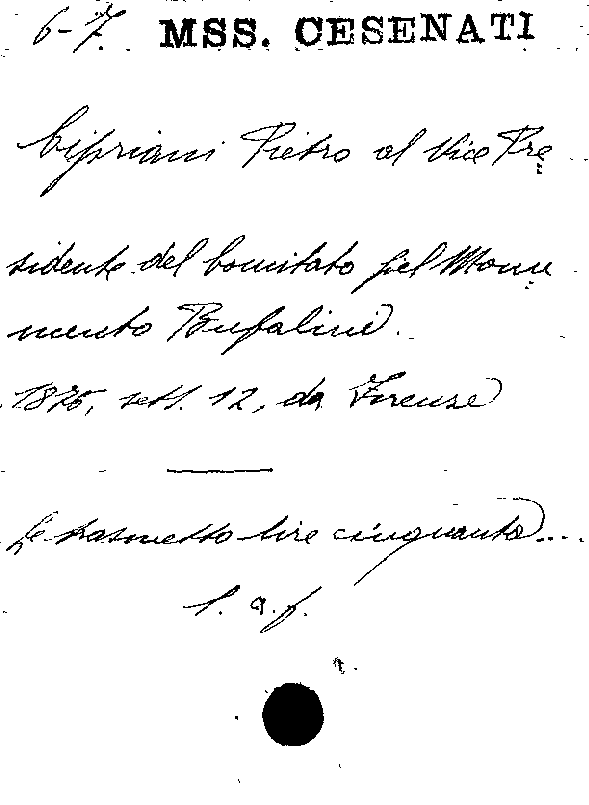 6-7. MSS. CESENATI
Cipriani Pietro al Vice Pre
sidente del Comitato pel Monu
mento Bufalini.
1875, sett. 12, da Firenze
Le trasmetto lire cinquanta....
l. a. f.